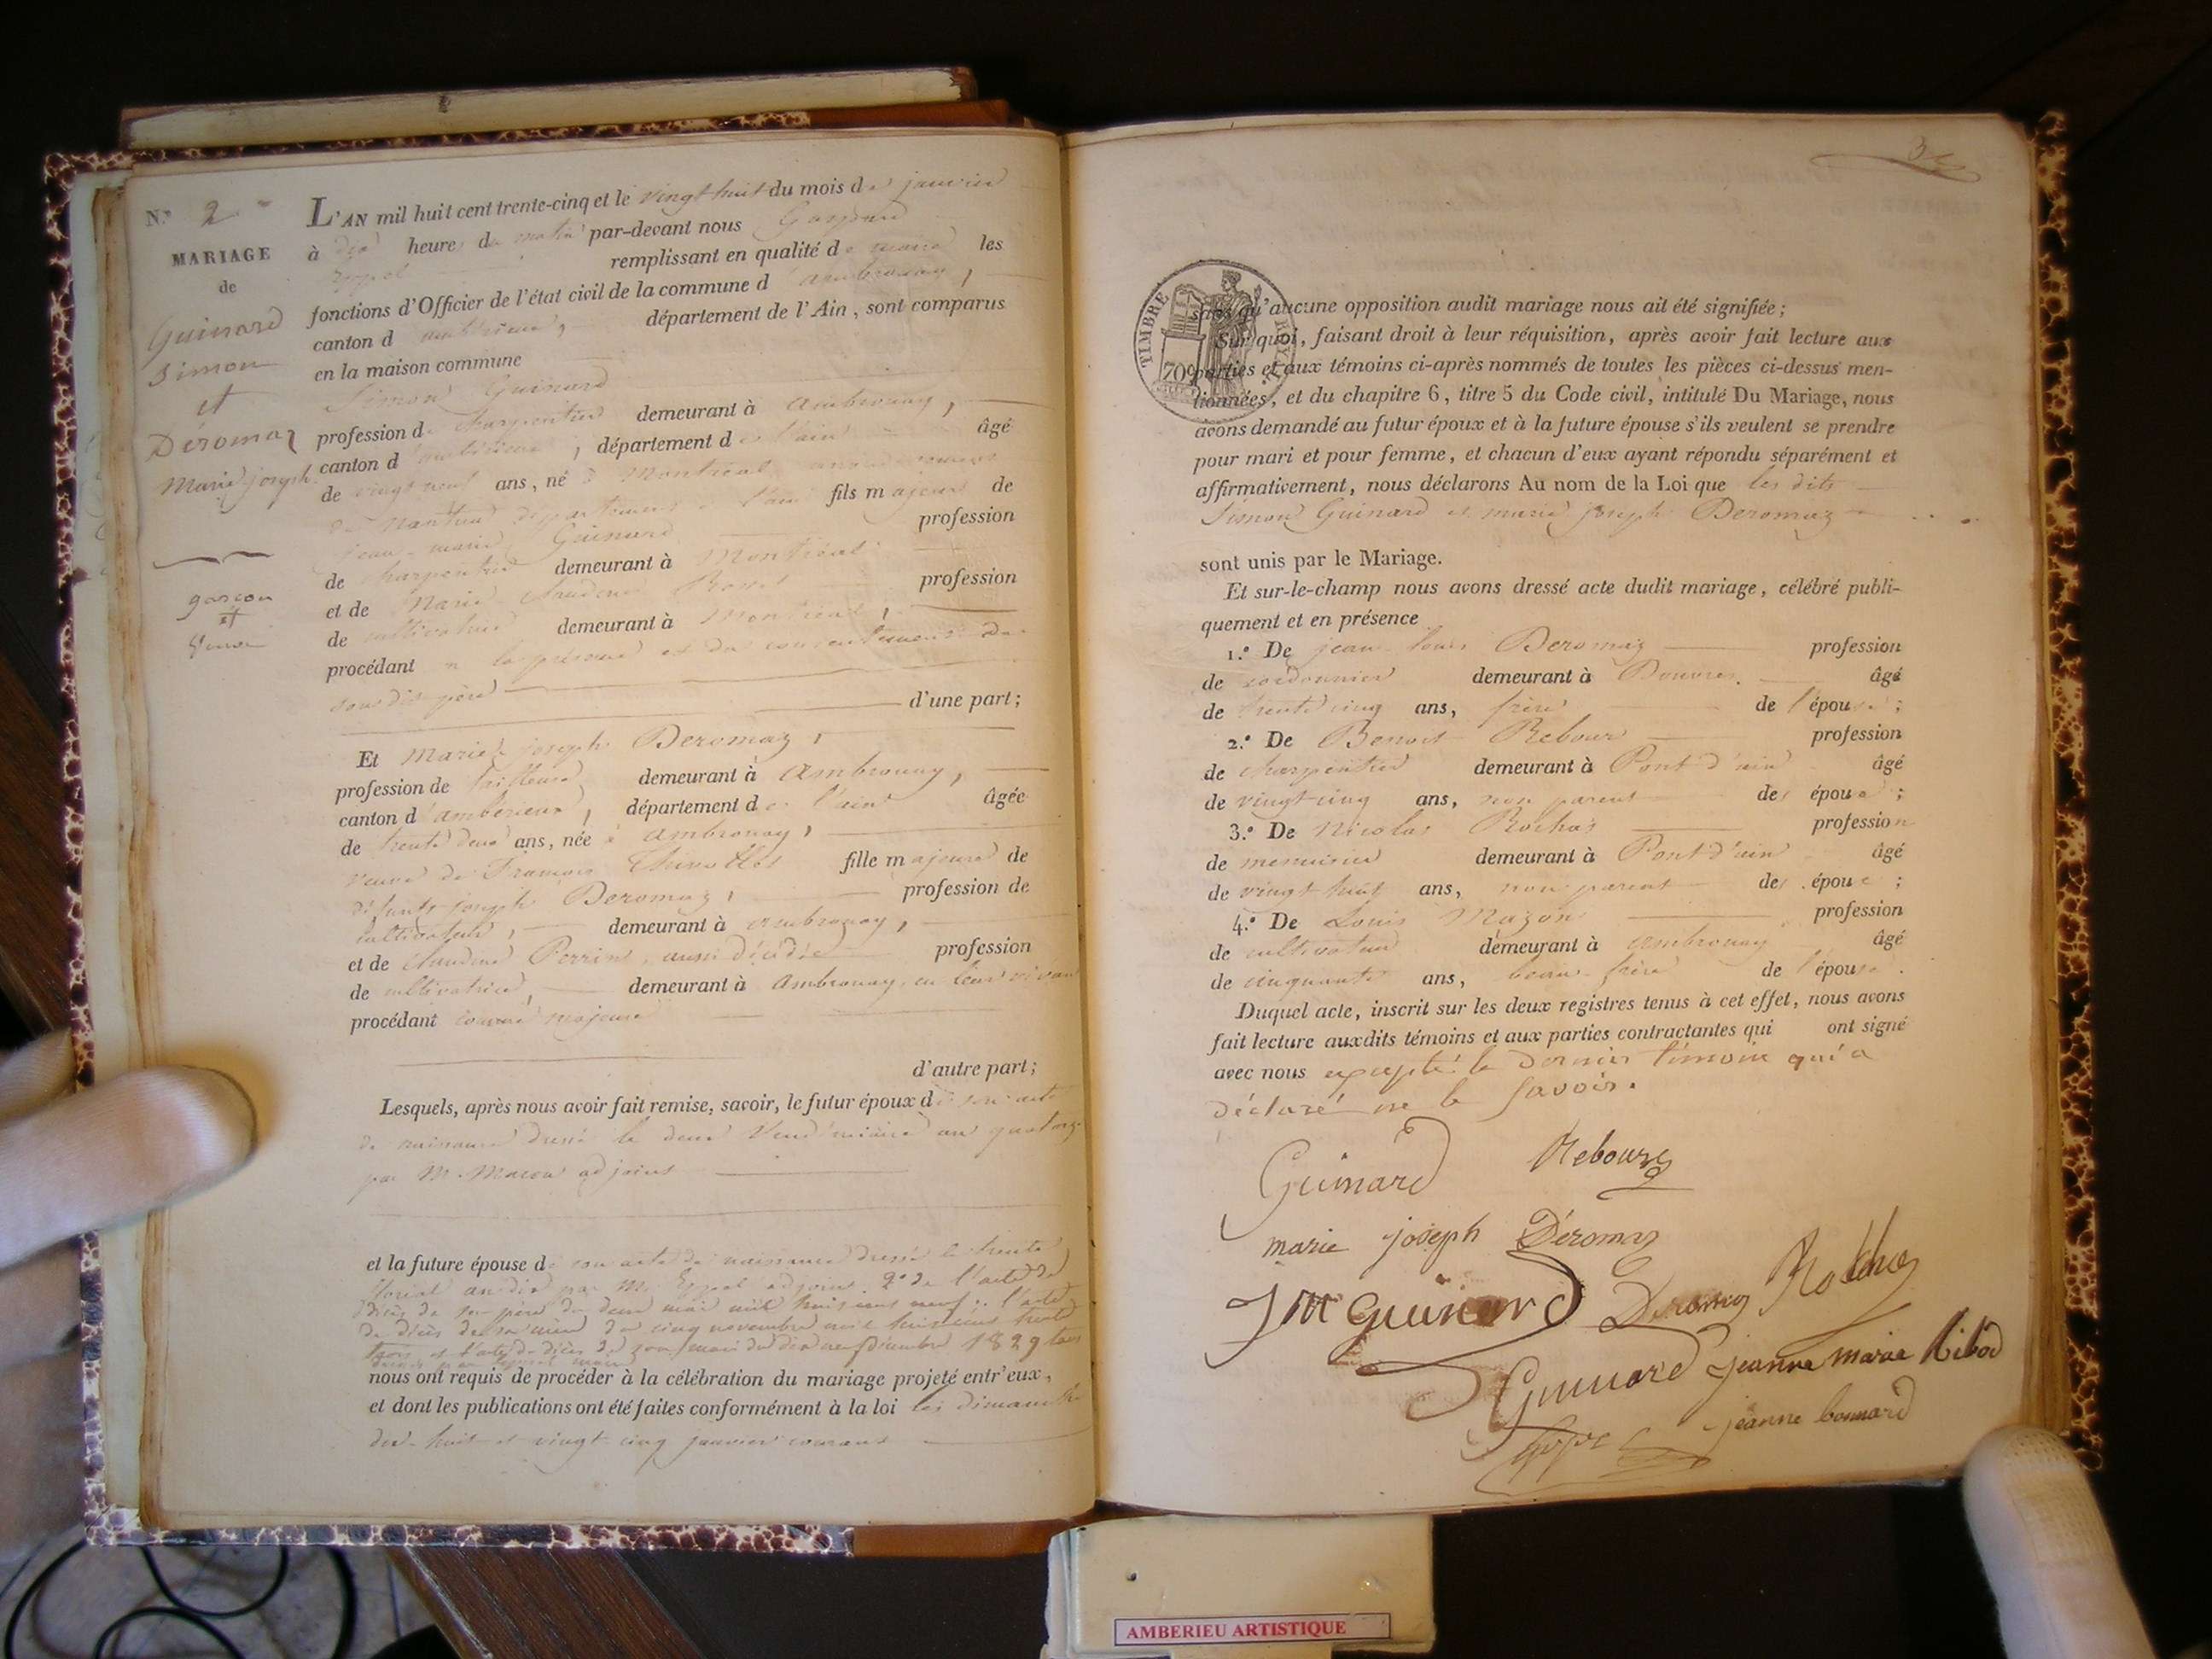 N.º 2
MARIAGE
de
Guinard
Simon
et
Déromaz
Marie joseph
garçon
et
L'AN mil huit cent trente-cinq et le vingt huit du mois de janvier
à dix heures du matin par-devant nous Gaspard
remplissant en qualité de maire les
fonctions d'Officier de l'état civil de la commune d'ambronay,
canton d'ambérieux, département de l'Ain, sont comparus
en la maison commune
Simon Guinard
profession de charpentier demeurant à ambronay,
canton d'ambérieux, département de l'ain âgé
de vingt neuf ans, né à Montréal
de Nantua département de l'ain fils majeur de
jean-marie Guinard profession
de charpentier demeurant à Montréal
et de Marie profession
de cultivatrice demeurant à Montréal,
procédant en la présence et du consentement de
sondit père d'une part;
Et Marie joseph Deromaz,
profession de tailleuse demeurant à ambronay,
canton d'ambérieux, département de l'ain âgée
de trente deux ans, née à ambronay,
veuve de François fille majeure de
défunts joseph Deromaz, profession de
cultivateur, demeurant à ambronay,
et de claudine Perrin, aussi décédée profession
de cultivatrice, demeurant à ambronay, en leur vivant
procédant comme majeure
d'autre part;
Lesquels, après nous avoir fait remise, savoir, le futur époux de son acte
de naissance dressé le deux Vendémiaire an quatorze
par M. Macon adjoint
et la future épouse de son acte de naissance dressé le trente
floréal an dix par M. adjoint 2º de l'acte de
décès de son père du deux mai mil huit cent neuf: l'acte
de décès de sa mère du cinq novembre mil huit cent trente
trois et l'acte de décès de son mari du dix neuf 1829 tous
nous ont requis de procéder à la célébration du mariage projeté entr'eux,
et dont les publications ont été faites conformément à la loi les dimanche
dix-huit et vingt-cinq janvier courant
TIMBRE ROYAL
70c
sans qu'aucune opposition audit mariage nous ait été signifiée;
Sur quoi, faisant droit à leur réquisition, après avoir fait lecture aux
parties et aux témoins ci-après nommés de toutes les pièces ci-dessus men-
tionnées, et du chapitre 6, titre 5 du Code civil, intitulé Du Mariage, nous
avons demandé au futur époux et à la future épouse s'ils veulent se prendre
pour mari et pour femme, et chacun d'eux ayant répondu séparément et
affirmativement, nous déclarons Au nom de la Loi que les dits
Simon Guinard et marie joseph Deromaz
sont unis par le Mariage.
Et sur-le-champ nous avons dressé acte dudit mariage, célébré publi-
quement et en présence
1.º De jean-louis Deromaz profession
de cordonnier demeurant à Douvres. âgé
de trente cinq ans, frère de l'épouse;
2.º De Benoit Rebour profession
de charpentier demeurant à Pont d'ain âgé
de vingt cinq ans, non parent des époux;
3.º De Nicolas Rochas profession
de menuisier demeurant à Pont d'ain âgé
de vingt huit ans, non parent des époux;
4.º De Louis Mazon profession
de cultivateur demeurant à ambronay âgé
de cinquante ans, beau-frère de l'épouse.
Duquel acte, inscrit sur les deux registres tenus à cet effet, nous avons
fait lecture auxdits témoins et aux parties contractantes qui ont signé
avec nous excepté le dernier témoin qui a
déclaré ne le savoir.
Guinard Rebourg
marie joseph Déromaz
J M Guinard Deromaz
Guinard jeanne marie Ribod
jeanne bonnard
AMBERIEU ARTISTIQUE